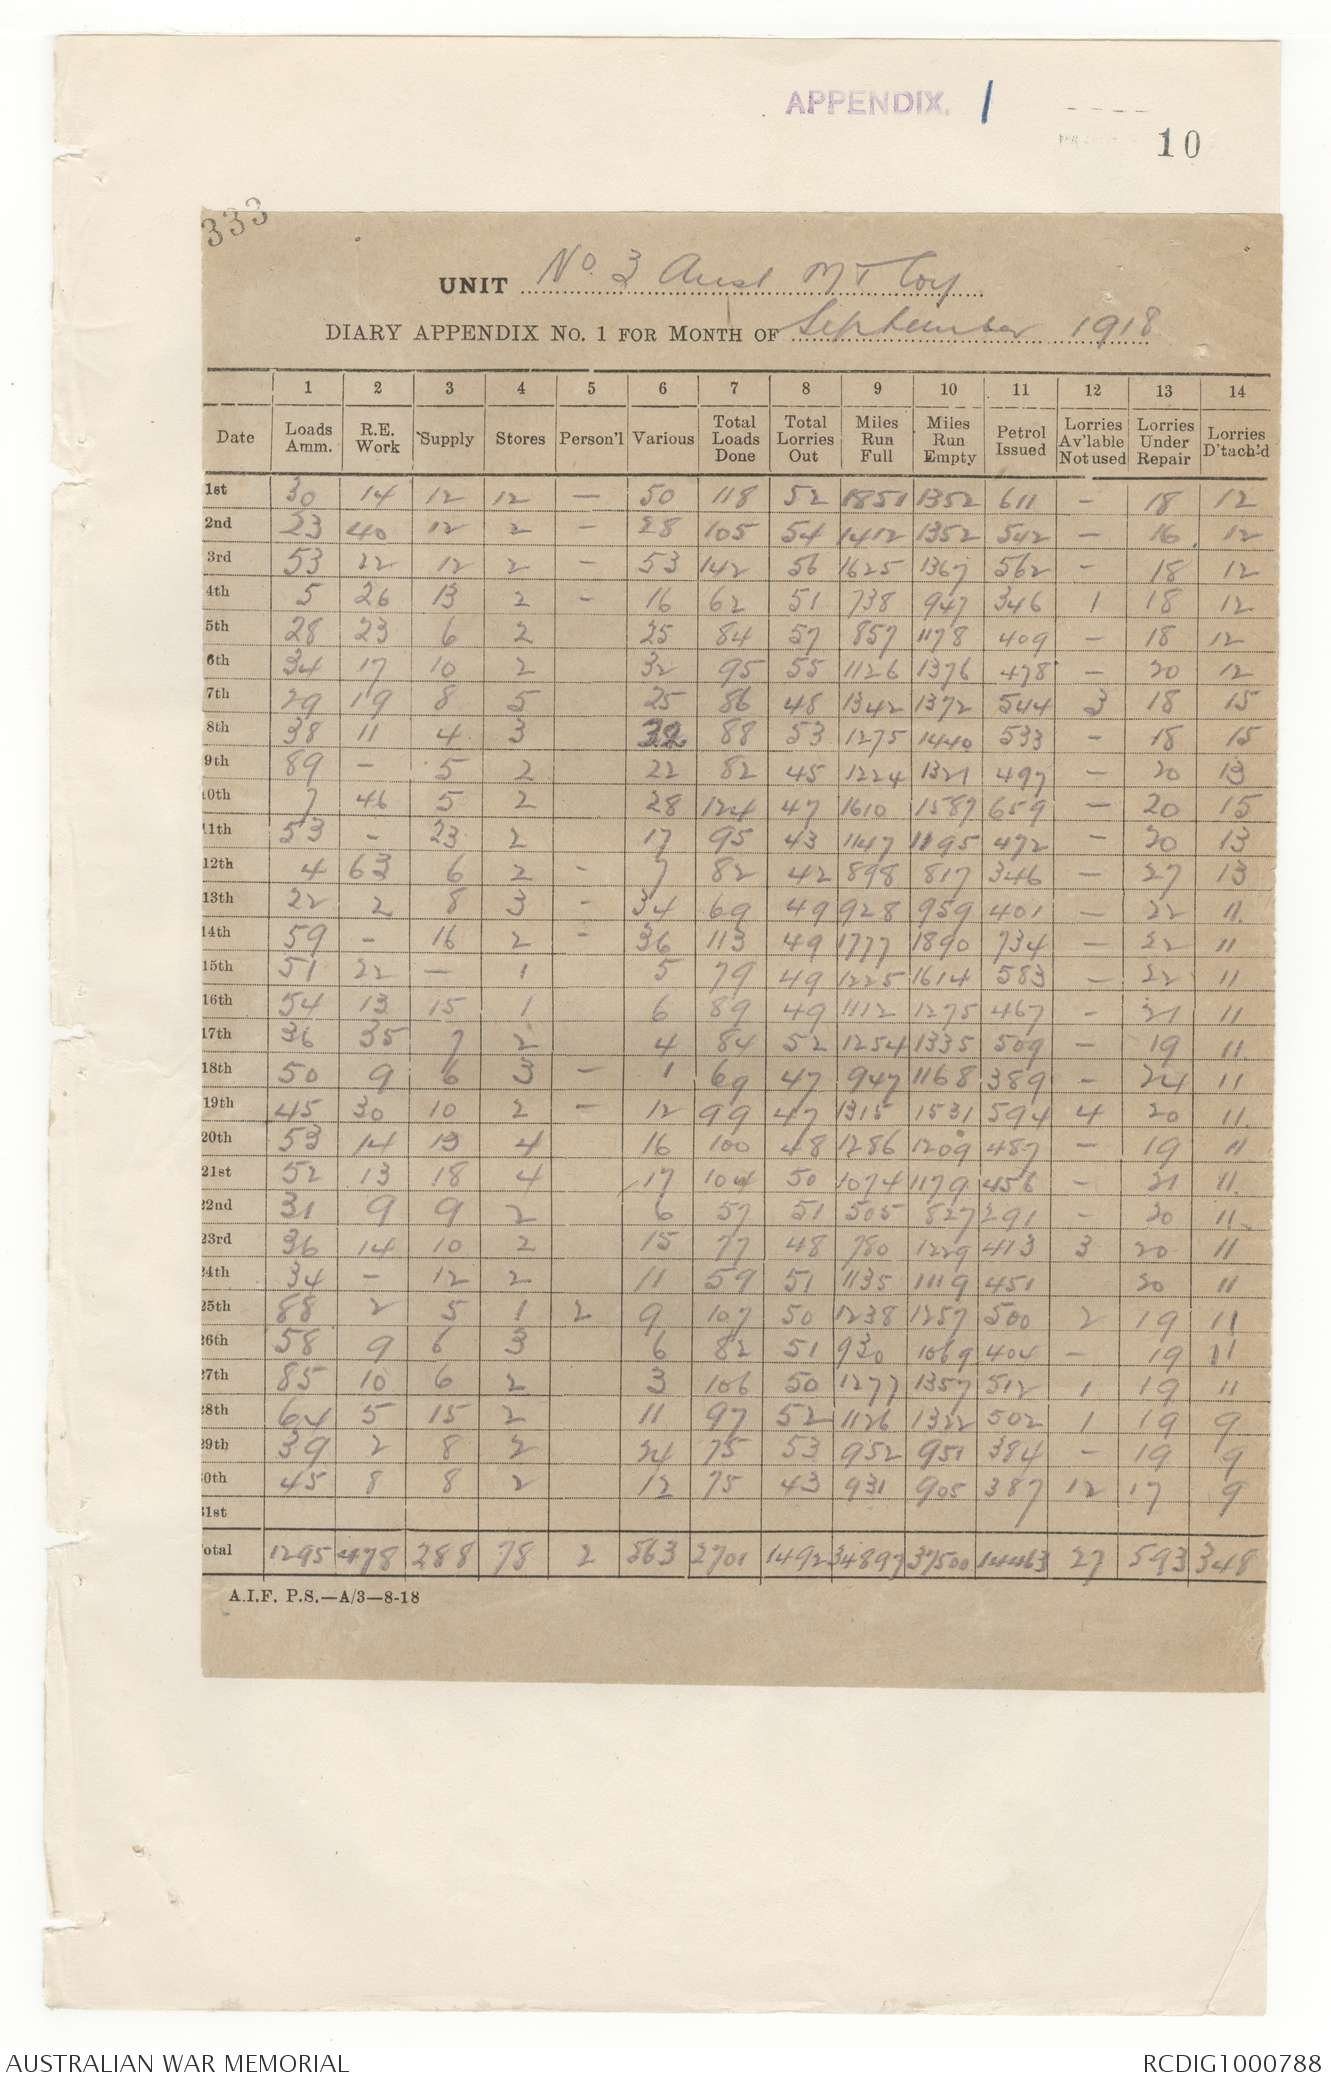 APPENDIX. 1
10
333
UNIT No. 3 Aust MT Coy
DIARY APPENDIX No. 1 FOR MONTH OF September 1918
1 2 3 4 5 6 7 8 9 10 11 12 13 14
Date Loads Amm. R.E. Work Supply Stores Person'l Various Total Loads Done Total Lorries Out Miles Run Full Miles Run Empty Petrol Issued Lorries Av'lable Not used Lorries Under Repair Lorries D'tach'd
1st 30 14 12 12 — 50 118 52 1851 1352 611 - 18 12
2nd 23 40 12 2 - 28 105 54 1412 1352 542 - 16 12
3rd 53 22 12 2 - 53 142 56 1625 1367 562 - 18 12
4th 5 26 13 2 - 16 62 51 738 947 346 1 18 12
5th 28 23 6 2 25 84 57 857 1178 409 - 18 12
6th 34 17 10 2 32 95 55 1126 1376 478 - 20 12
7th 29 19 8 5 25 86 48 1342 1372 544 3 18 15
8th 38 11 4 3 32 88 53 1275 1440 533 - 18 15
9th 89 - 5 2 22 82 45 1224 1321 497 - 20 13
10th 7 46 5 2 28 124 47 1610 1587 659 - 20 15
11th 53 - 23 2 17 95 43 1147 1195 472 - 20 13
12th 4 63 6 2 - 7 82 42 898 817 346 - 27 13
13th 22 2 8 3 - 34 69 49 928 959 401 - 22 11
14th 59 - 16 2 - 36 113 49 1777 1890 734 - 22 11
15th 51 22 — 1 5 79 49 1225 1614 583 - 22 11
16th 54 13 15 1 6 89 49 1112 1275 467 - 21 11
17th 36 35 7 2 4 84 52 1254 1335 509 - 19 11
18th 50 9 6 3 - 1 69 47 947 1168 389 - 24 11
19th 45 30 10 2 - 12 99 47 1315 1531 594 4 20 11
20th 53 14 13 4 16 100 48 1286 1209 487 - 19 11
21st 52 13 18 4 17 104 50 1074 1179 456 - 21 11
22nd 31 9 9 2 6 57 51 505 827 291 - 20 11
23rd 36 14 10 2 15 77 48 780 1229 413 3 20 11
24th 34 - 12 2 11 59 51 1135 1119 451 20 11
25th 88 2 5 1 2 9 107 50 1238 1257 500 2 19 11
26th 58 9 6 3 6 82 51 930 1069 404 - 19 11
27th 85 10 6 2 3 106 50 1277 1357 512 1 19 11
28th 64 5 15 2 11 97 52 1126 1322 502 1 19 9
29th 39 2 8 2 24 75 53 952 951 384 - 19 9
30th 45 8 8 2 12 75 43 931 905 387 12 17 9
31st
Total 1295 478 288 78 2 563 2701 1492 34897 37500 14463 27 593 348
A.I.F. P.S.—A/3—8-18
AUSTRALIAN WAR MEMORIAL
RCDIG1000788